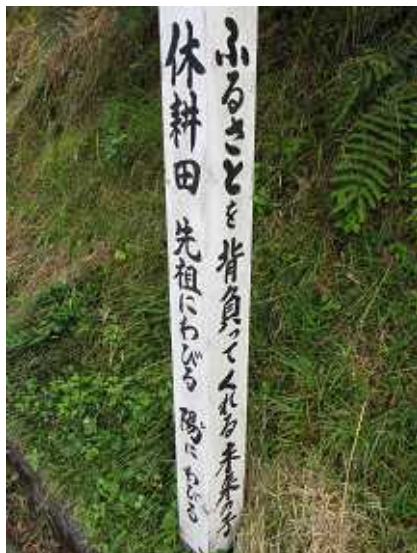 ふるさとを背負ってくれる未来の子
休耕田 先祖にわびる 陽にわびる